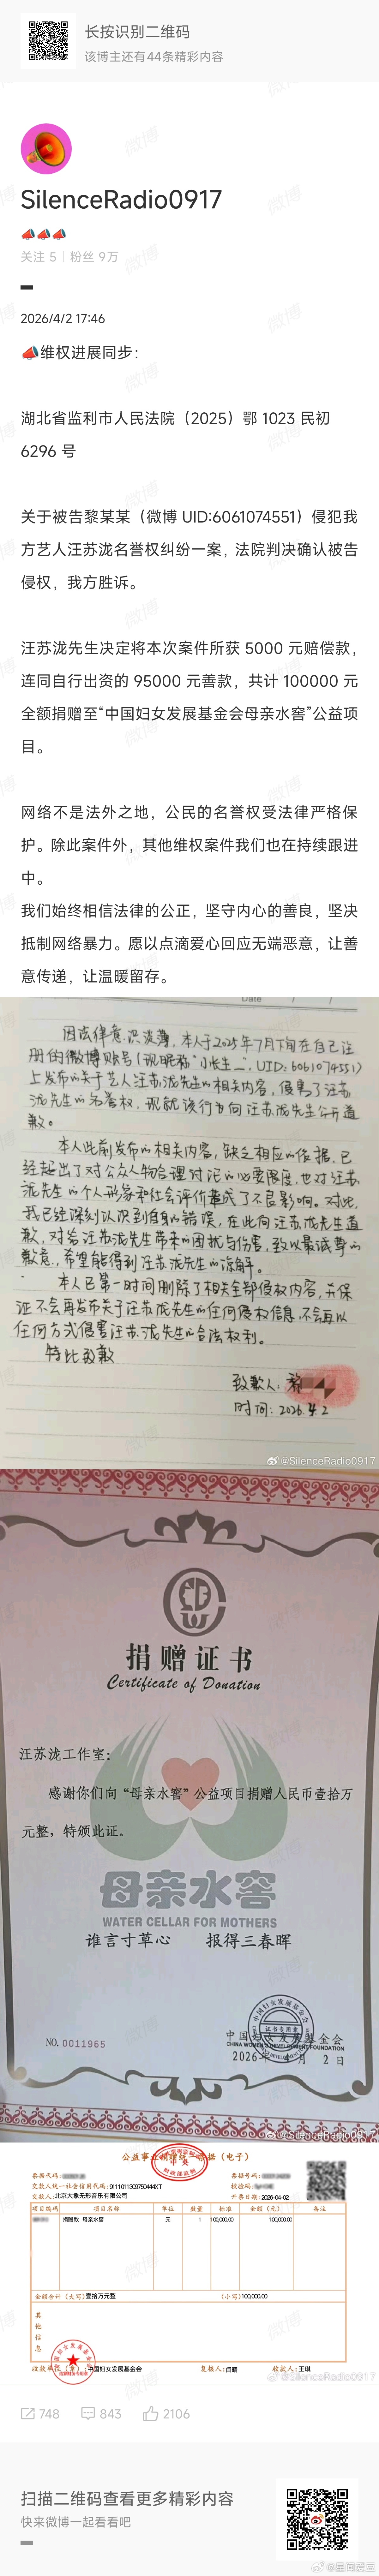 长按识别二维码
该博主还有44条精彩内容
SilenceRadio0917
📣📣📣
关注 5 | 粉丝 9万
2026/4/2 17:46
📣维权进展同步：
湖北省监利市人民法院（2025）鄂 1023 民初
6296 号
关于被告黎某某（微博 UID:6061074551）侵犯我
方艺人汪苏泷名誉权纠纷一案，法院判决确认被告
侵权，我方胜诉。
汪苏泷先生决定将本次案件所获 5000 元赔偿款，
连同自行出资的 95000 元善款，共计 100000 元
全额捐赠至“中国妇女发展基金会母亲水窖”公益项
目。
网络不是法外之地，公民的名誉权受法律严格保
护。除此案件外，其他维权案件我们也在持续跟进
中。
我们始终相信法律的公正，坚守内心的善良，坚决
抵制网络暴力。愿以点滴爱心回应无端恶意，让善
意传递，让温暖留存。
Date
因法律意识淡薄，本人于2025年7月下旬在自己注
册的微博账号（现昵称“小长生 ”，UID：6061074551）
上发布的关于艺人汪苏泷先生的相关内容，侵害了汪苏
泷先生的名誉权，现就该行为向汪苏泷先生公开道
歉。
本人此前发布的相关内容，缺乏相应的依据，已
经超出了对公众人物合理讨论的必要限度，也对汪苏
泷先生的个人形象和社会评价造成了不良影响。对此
我已经深刻认识到自身的错误，在此向汪苏泷先生道
歉，对给汪苏泷先生带来的困扰与伤害，致以最诚挚的
歉意，希望能得到汪苏泷先生的谅解。
本人已第一时间删除了相关全部侵权内容，并保
证不会再发布关于汪苏泷先生的任何侵权信息，不会再以
任何方式侵害汪苏泷先生的合法权利。
特此致歉
致歉人：黎
时间：2026.4.2
@SilenceRadio0917
捐赠证书
Certificate of Donation
汪苏泷工作室：
感谢你们向“母亲水窖”公益项目捐赠人民币壹拾万
元整，特颁此证。
母亲水窖
WATER CELLAR FOR MOTHERS
谁言寸草心 报得三春晖
中国妇女发展基金会
CHINA WOMEN'S DEVELOPMENT FOUNDATION
NO. 0011965
2026年 月 2日
@SilenceRadio0917
公益事业捐赠统一票据（电子）
票据代码：
票据号码：
交款人统一社会信用代码：91110113097504​44XT
校验码：
交款人：北京大象无形音乐有限公司
开票日期：2026-04-02
项目编码 项目名称 单位 数量 标准 金额（元） 备注
捐赠款 母亲水窖 元 1 100,000.00 100,000.00
金额合计（大写）壹拾万元整 （小写）100,000.00
其他信息
收款单位（章）：中国妇女发展基金会 复核人：闫晴 收款人：王琪
@SilenceRadio0917
748 843 2106
扫描二维码查看更多精彩内容
快来微博一起看看吧